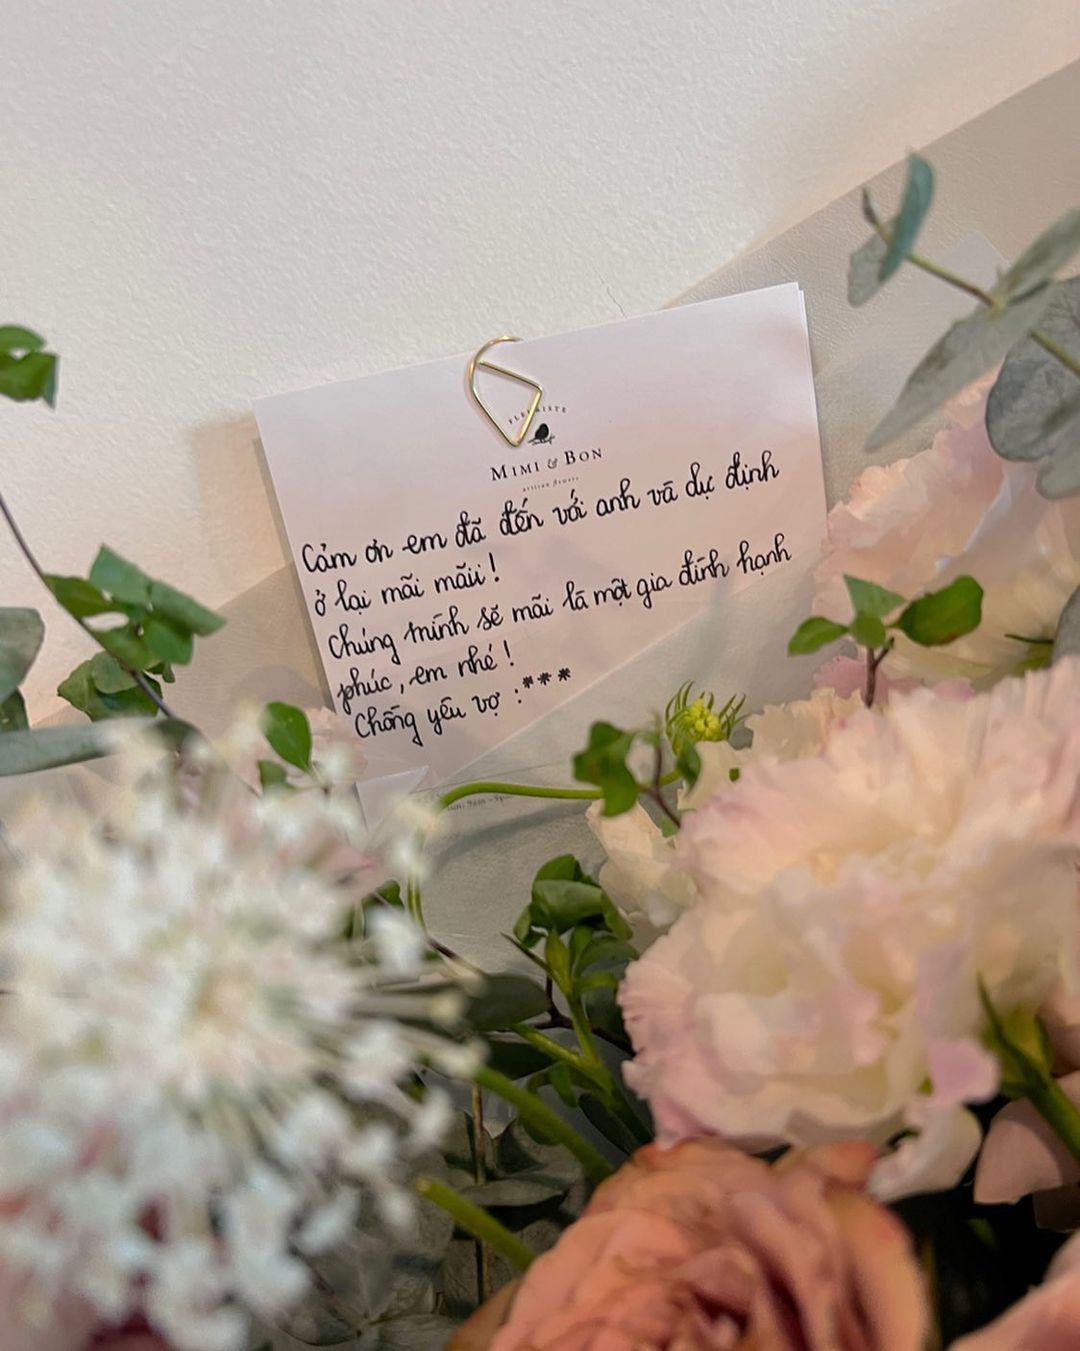 FLEURISTE
MIMI & BON
artisan flowers
Cảm ơn em đã đến với anh và dự định
ở lại mãi mãii!
Chúng mình sẽ mãi là một gia đình hạnh
phúc, em nhé!
Chồng yêu vợ :***